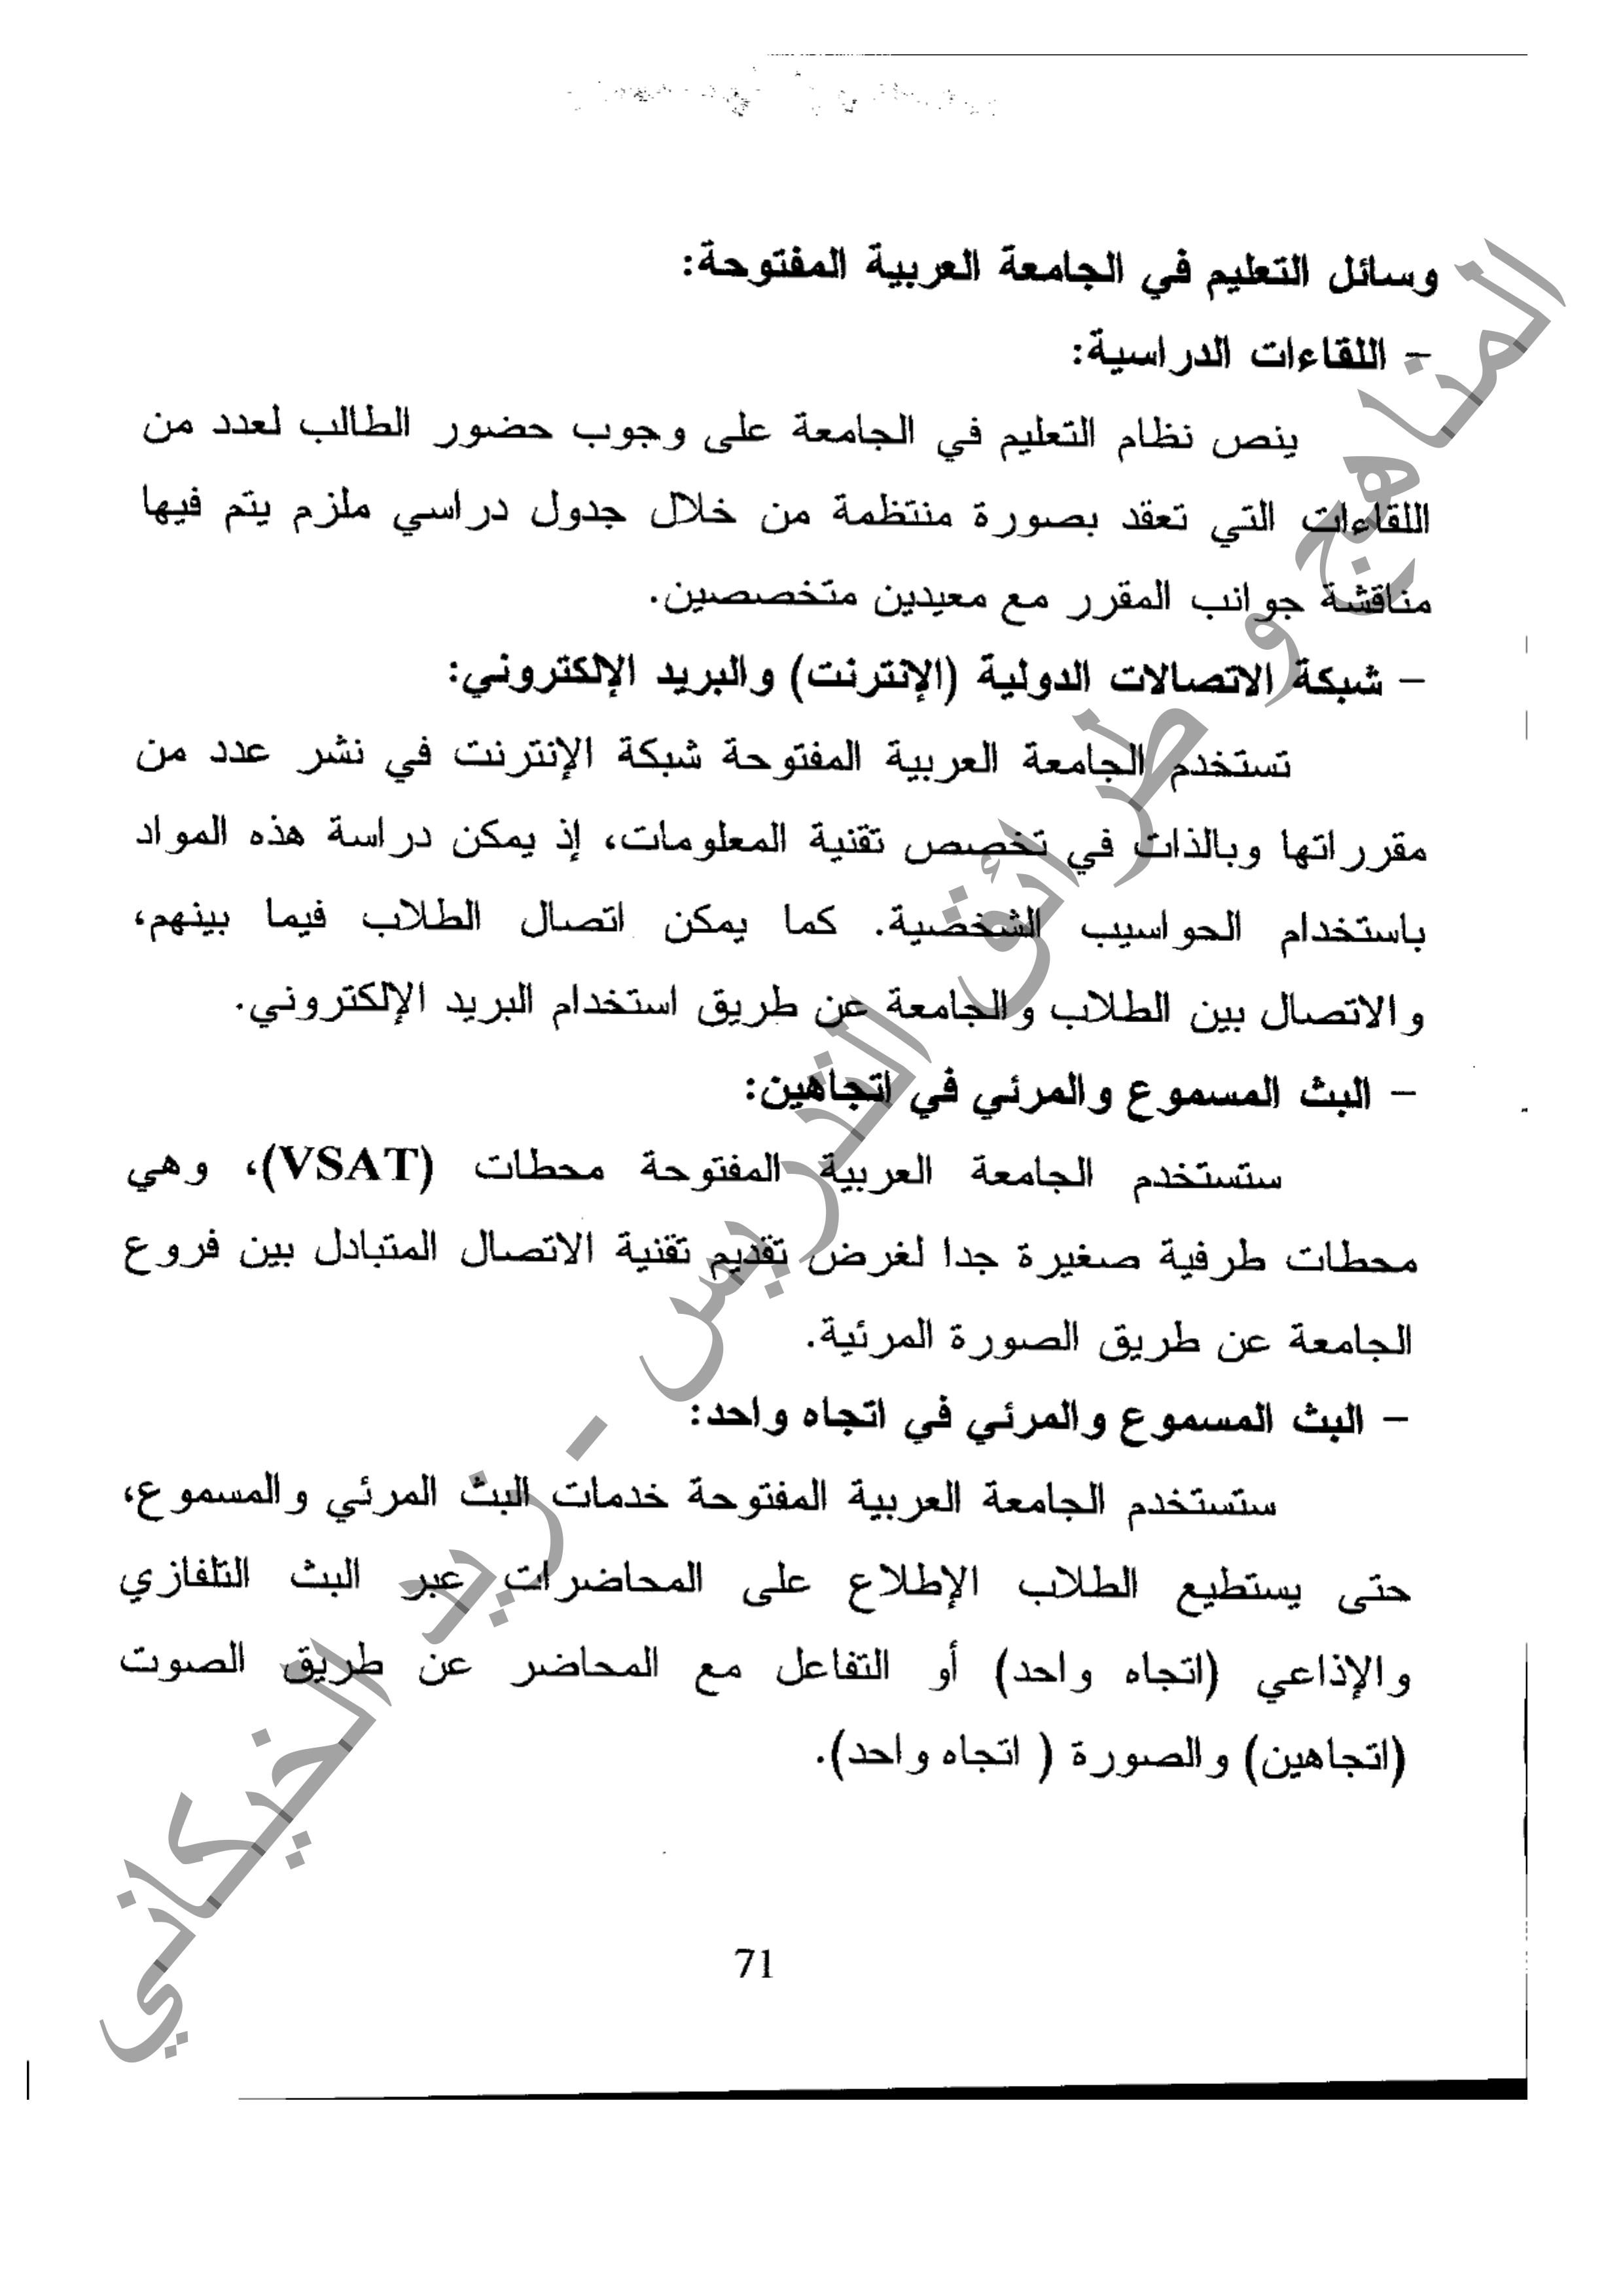 وسائل التعليم في الجامعة العربية المفتوحة:
– اللقاءات الدراسية:
ينص نظام التعليم في الجامعة على وجوب حضور الطالب لعدد من
اللقاءات التي تعقد بصورة منتظمة من خلال جدول دراسي ملزم يتم فيها
مناقشة جوانب المقرر مع معيدين متخصصين.
– شبكة الاتصالات الدولية (الإنترنت) والبريد الإلكتروني:
تستخدم الجامعة العربية المفتوحة شبكة الإنترنت في نشر عدد من
مقرراتها وبالذات في تخصص تقنية المعلومات، إذ يمكن دراسة هذه المواد
باستخدام الحواسيب الشخصية. كما يمكن اتصال الطلاب فيما بينهم،
والاتصال بين الطلاب والجامعة عن طريق استخدام البريد الإلكتروني.
– البث المسموع والمرئي في اتجاهين:
ستستخدم الجامعة العربية المفتوحة محطات (VSAT)، وهي
محطات طرفية صغيرة جدا لغرض تقديم تقنية الاتصال المتبادل بين فروع
الجامعة عن طريق الصورة المرئية.
– البث المسموع والمرئي في اتجاه واحد:
ستستخدم الجامعة العربية المفتوحة خدمات البث المرئي والمسموع،
حتى يستطيع الطلاب الإطلاع على المحاضرات عبر البث التلفازي
والإذاعي (اتجاه واحد) أو التفاعل مع المحاضر عن طريق الصوت
(اتجاهين) والصورة ( اتجاه واحد).
71
المناهج و طرائق التدريس - زيد الخيكاني